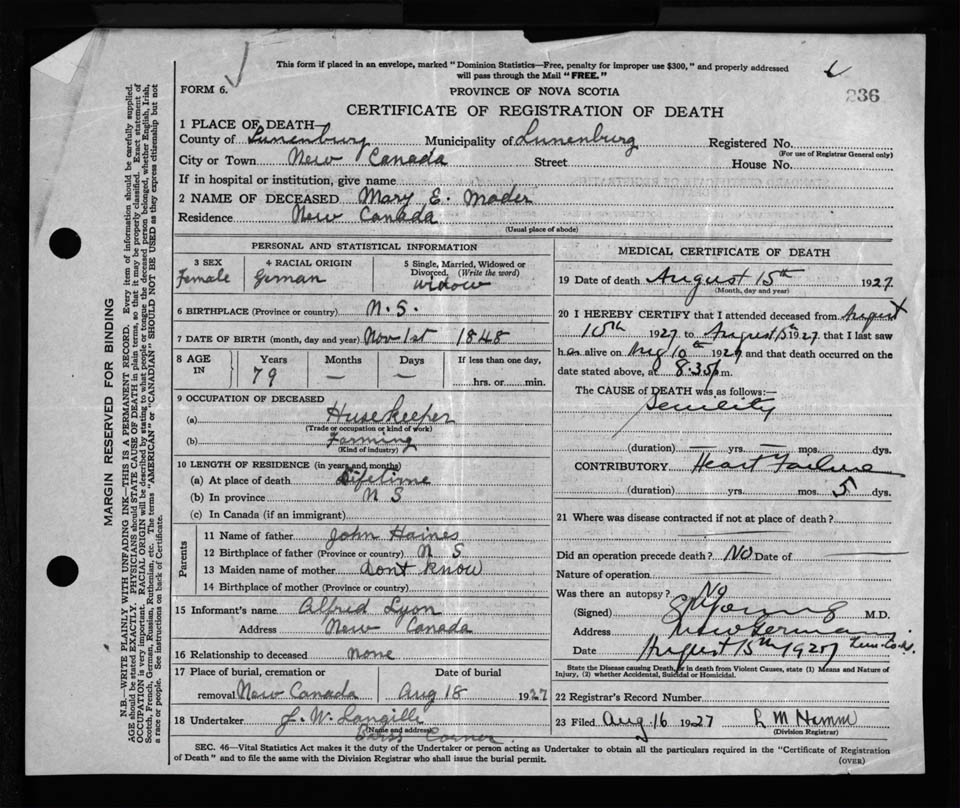 This form if placed in an envelope, marked "Dominion Statistics—Free, penalty for improper use $300," and properly addressed
will pass through the Mail "FREE."
FORM 6.
PROVINCE OF NOVA SCOTIA
236
CERTIFICATE OF REGISTRATION OF DEATH
1 PLACE OF DEATH—
County of Lunenburg Municipality of Lunenburg Registered No.
(For use of Registrar General only)
City or Town New Canada Street House No.
If in hospital or institution, give name
2 NAME OF DECEASED Mary E. Mader
Residence New Canada
(Usual place of abode)
PERSONAL AND STATISTICAL INFORMATION
3 SEX 4 RACIAL ORIGIN 5 Single, Married, Widowed or
Divorced, (Write the word)
Female German widow
6 BIRTHPLACE (Province or country) N.S.
7 DATE OF BIRTH (month, day and year) Nov 1st 1848
8 AGE IN Years Months Days If less than one day,
79 — — hrs. or min.
9 OCCUPATION OF DECEASED
(a) Husekeeper
(Trade or occupation or kind of work)
(b) Farming
(Kind of industry)
10 LENGTH OF RESIDENCE (in years and months)
(a) At place of death Lifetime
(b) In province N S
(c) In Canada (if an immigrant)
Parents
11 Name of father John Haines
12 Birthplace of father (Province or country) N S
13 Maiden name of mother Dont know
14 Birthplace of mother (Province or country)
15 Informant's name Alfred Lyon
Address New Canada
16 Relationship to deceased none
17 Place of burial, cremation or Date of burial
removal New Canada Aug 18 1927
18 Undertaker J. W. Langille
(Name and address)
Corner
MEDICAL CERTIFICATE OF DEATH
19 Date of death August 15th 1927
(Month, day and year)
20 I HEREBY CERTIFY that I attended deceased from August
10th 1927 to August 15th 1927 that I last saw
h alive on Aug 10th 1927 and that death occurred on
date stated above, at 8.35 p m.
The CAUSE of DEATH was as follows:
Senility
(duration) — yrs. — mos. dys.
CONTRIBUTORY Heart Failure
(duration) yrs. mos. 5 dys.
21 Where was disease contracted if not at place of death?
Did an operation precede death? NO Date of
Nature of operation
Was there an autopsy? No
(Signed) Young M.D.
Address
Date August 15th 1927
State the Disease causing Death, or in death from Violent Causes, state (1) Means and Nature of
Injury, (2) whether Accidental, Suicidal or Homicidal.
22 Registrar's Record Number
23 Filed Aug 16 1927
(Division Registrar)
SEC. 46—Vital Statistics Act makes it the duty of the Undertaker or person acting as Undertaker to obtain all the particulars required in the "Certificate of Registration
of Death" and to file the same with the Division Registrar who shall issue the burial permit.
(OVER)
MARGIN RESERVED FOR BINDING
N.B.—WRITE PLAINLY WITH UNFADING INK—THIS IS A PERMANENT RECORD. Every item of information should be carefully supplied.
AGE should be stated EXACTLY. PHYSICIANS should STATE CAUSE OF DEATH in plain terms, so that it may be properly classified. Exact statement of
OCCUPATION is very important. RACIAL ORIGIN will be described by stating to what people or tongue the deceased person belonged, whether English, Irish,
Scotch, French, German, Russian, Ruthenian, etc. The terms "AMERICAN" or "CANADIAN" SHOULD NOT BE USED as they express citizenship but not
a race or people. See instructions on back of Certificate.